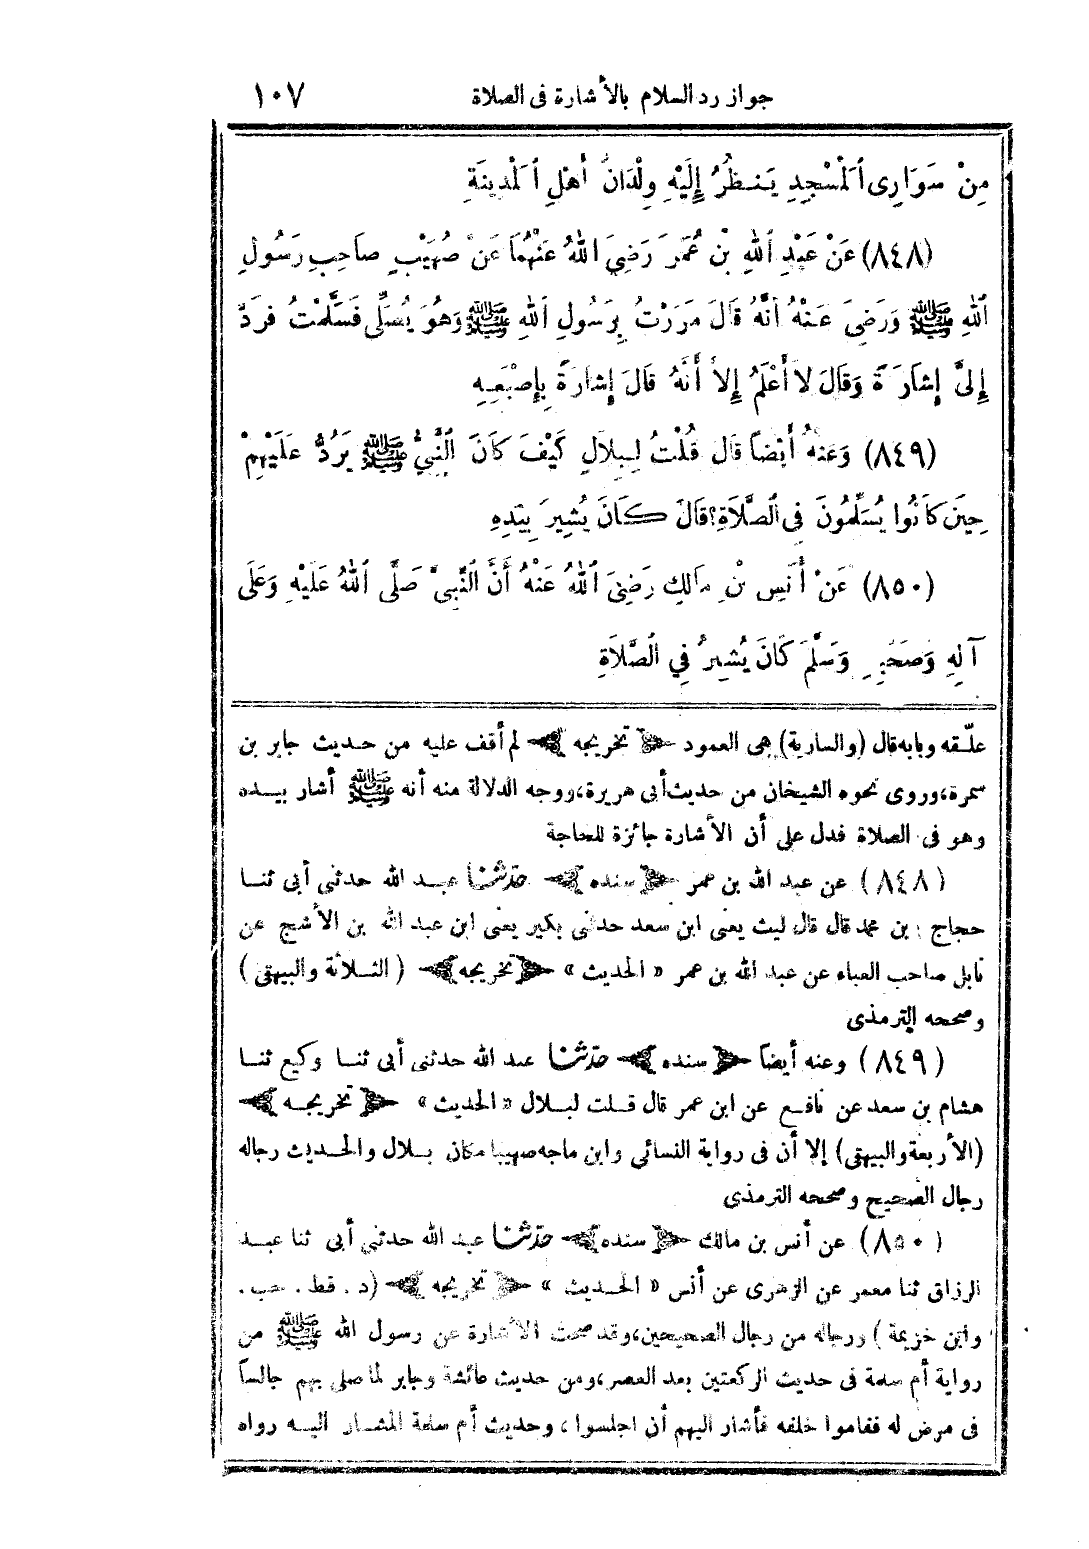 جواز رد السلام بالأشارة فى الصلاة ١٠٧
مِنْ سَوَارِى ٱلْمَسْجِدِ يَنْظُرُ إِلَيْهِ وِلْدَانُ أَهْلِ ٱلْمَدِينَةِ
(٨٤٨) عَنْ عَبْدِ ٱللهِ بْنِ عُمَرَ رَضِيَ اللهُ عَنْهُمَا عَنْ صُهَيْبٍ صَاحِبِ رَسُولِ
ٱللهِ ﷺ وَرَضِىَ عَنْهُ أَنَّهُ قَالَ مَرَرْتُ بِرَسُولِ ٱللهِ ﷺ وَهُوَ يُصَلِّى فَسَلَّمْتُ فَرَدَّ
إِلَىَّ إِشَارَةً وَقَالَ لاَ أَعْلَمُ إِلاَّ أَنَّهُ قَالَ إِشَارَةً بِإِصْبَعِهِ
(٨٤٩) وَعَنْهُ أَيْضاً قَالَ قُلْتُ لِبِلاَلٍ كَيْفَ كَانَ ٱلنَّبِيُّ ﷺ يَرُدُّ عَلَيْهِمْ
حِينَ كَانُوا يُسَلِّمُونَ فِى ٱلصَّلاَةِ؟ قَالَ كَانَ يُشِيرَ بِيَدِهِ
(٨٥٠) عَنْ أَنَسِ بْنِ مَالِكٍ رَضِىَ ٱللهُ عَنْهُ أَنَّ ٱلنَّبِىَّ صَلَّى ٱللهُ عَلَيْهِ وَعَلَى
آلِهِ وَصَحْبِهِ وَسَلَّمَ كَانَ يُشِيرُ فِي ٱلصَّلاَةِ
علّقه وبابه قال (والسارية) هى العمود ﴿ تخريجه ﴾ لم أقف عليه من حديث جابر بن
سمرة، وروى نحوه الشيخان من حديث أبى هريرة، ووجه الدلالة منه أنه ﷺ أشار بيده
وهو فى الصلاة فدل على أن الأشارة جائزة للحاجة
(٨٤٨) عن عبد الله بن عمر ﴿ سنده ﴾ حدّثنا عبد الله حدثنى أبى ثنا
حجاج بن محمد قال قال ليث يعنى ابن سعد حدثنى بكير يعنى ابن عبد الله بن الأشج عن
نابل صاحب العباء عن عبد الله بن عمر « الحديث » ﴿ تخريجه ﴾ (الثلاثة والبيهقى)
وصححه الترمذى
(٨٤٩) وعنه أيضاً ﴿ سنده ﴾ حدّثنا عبد الله حدثنى أبى ثنا وكيع ثنا
هشام بن سعد عن نافع عن ابن عمر قال قلت لبلال « الحديث » ﴿ تخريجه ﴾
(الأربعة والبيهقى) إلا أن فى رواية النسائى وابن ماجه صهيبا مكان بلال والحديث رجاله
رجال الصحيح وصححه الترمذى
(٨٥٠) عن أنس بن مالك ﴿ سنده ﴾ حدّثنا عبد الله حدثنى أبى ثنا عبد
الرزاق ثنا معمر عن الزهرى عن أنس « الحديث » ﴿ تخريجه ﴾ (د . قط . حب .
وابن خزيمة) ورجاله من رجال الصحيحين، وقد صحت الأشارة عن رسول الله ﷺ من
رواية أم سلمة فى حديث الركعتين بعد العصر، ومن حديث عائشة وجابر لما صلى بهم جالساً
فى مرض له فقاموا خلفه فأشار اليهم أن اجلسوا، وحديث أم سلمة المشار اليه رواه